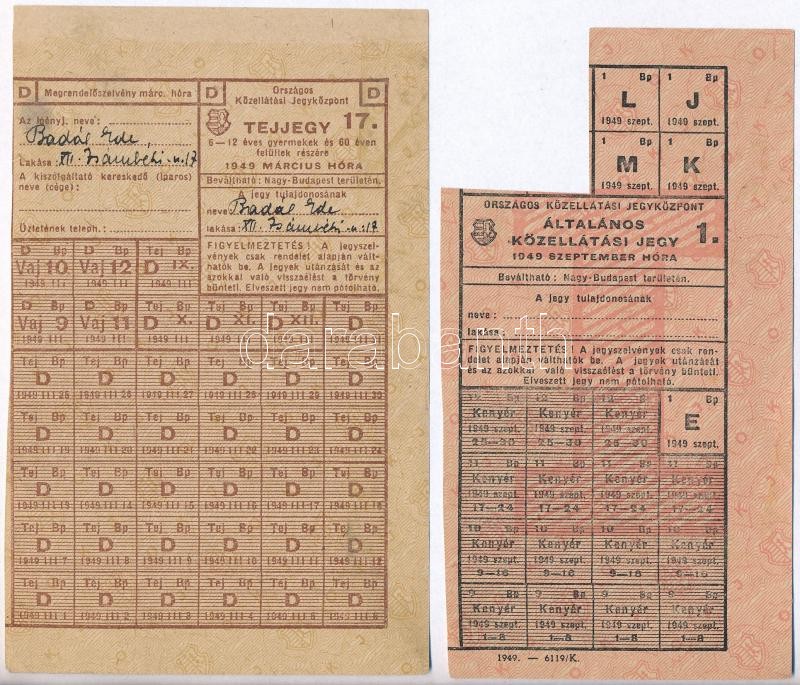 D Megrendelőszelvény márc. hóra D
Az igényj. neve:
Badál Ede,
Lakása: XII. Zsámbéki-u. 17
A kiszolgáltató kereskedő (iparos)
neve (cége):
Üzletének teleph.:
Országos D
Közellátási Jegyközpont
TEJJEGY 17.
6—12 éves gyermekek és 60 éven
felüliek részére
1949 MÁRCIUS HÓRA
Beváltható: Nagy-Budapest területén.
A jegy tulajdonosának
neve Badál Ede
lakása: XII. Zsámbéki-u. 17
FIGYELMEZTETÉS! A jegyszel-
vények csak rendelet alapján vált-
hatók be. A jegyek utánzását és az
azokkal való visszaélést a törvény
bünteti. Elveszett jegy nem pótolható.
D Bp D Bp Tej Bp
Vaj 10 Vaj 12 D IX.
1949 III. 1949 III. 1949 III
D Bp D Bp Tej Bp Tej Bp Tej Bp
Vaj 9 Vaj 11 D X. D XI. D XII. D
1949 III 1949 III 1949 III
Tej Bp Tej Bp Tej Bp Tej Bp Tej Bp Tej Bp
D D D D D D
1949 III 25 1949 III 26 1949 III 27 1949 III 28 1949 III 29 1949 III 30
Tej Bp Tej Bp Tej Bp Tej Bp Tej Bp Tej Bp
D D D D D D
1949 III 19 1949 III 20 1949 III 21 1949 III 22 1949 III 23 1949 III 24
Tej Bp Tej Bp Tej Bp Tej Bp Tej Bp Tej Bp
D D D D D D
1949 III 13 1949 III 14 1949 III 15 1949 III 16 1949 III 17 1949 III 18
Tej Bp Tej Bp Tej Bp Tej Bp Tej Bp Tej Bp
D D D D D D
1949 III 7 1949 III 8 1949 III 9 1949 III 10 1949 III 11 1949 III 12
Tej Bp Tej Bp Tej Bp Tej Bp Tej Bp Tej Bp
D D D D D D
1949 III 1 1949 III 2 1949 III 3 1949 III 4 1949 III 5 1949 III 6
1 Bp 1 Bp
L J
1949 szept. 1949 szept.
1 Bp 1 Bp
M K
1949 szept. 1949 szept.
ORSZÁGOS KÖZELLÁTÁSI JEGYKÖZPONT
ÁLTALÁNOS
KÖZELLÁTÁSI JEGY 1.
1949 SZEPTEMBER HÓRA
Beváltható: Nagy-Budapest területén.
A jegy tulajdonosának
neve:
lakása:
FIGYELMEZTETÉS! A jegyszelvények csak ren-
delet alapján válthatók be. A jegyek utánzását
és az azokkal való visszaélést a törvény bünteti.
Elveszett jegy nem pótolható.
12 Bp 12 Bp 12 Bp 1 Bp
Kenyér Kenyér Kenyér E
1949 szept. 1949 szept. 1949 szept. 1949 szept.
25—30 25—30 25—30
11 Bp 11 Bp 11 Bp 11 Bp
Kenyér Kenyér Kenyér Kenyér
1949 szept. 1949 szept. 1949 szept. 1949 szept.
17—24 17—24 17—24 17—24
10 Bp 10 Bp 10 Bp 10 Bp
Kenyér Kenyér Kenyér Kenyér
1949 szept. 1949 szept. 1949 szept. 1949 szept.
9—16 9—16 9—16 9—16
9 Bp 9 Bp 9 Bp 9 Bp
Kenyér Kenyér Kenyér Kenyér
1949 szept. 1949 szept. 1949 szept. 1949 szept.
1—8 1—8 1—8 1—8
1949. — 6119/K.
darabanth